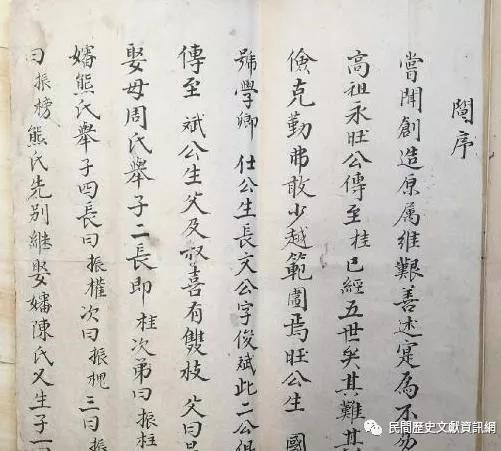 鬮序
嘗聞創造原属維艱善述寔為不易
高祖永旺公傳至桂已經五世矣其難其
儉克勤弗敢少越範圍焉旺公生 國
號學卿 仕公生長文公字俊斌此二公俱
傳至 斌公生父及叔喜有雙枝 父曰
娶母周氏舉子二長即桂次弟曰振柱
嬸熊氏舉子四長曰振權次曰振槐三曰振
曰振榜熊氏先别継娶嬸陳氏又生子一
民間歷史文獻資訊網